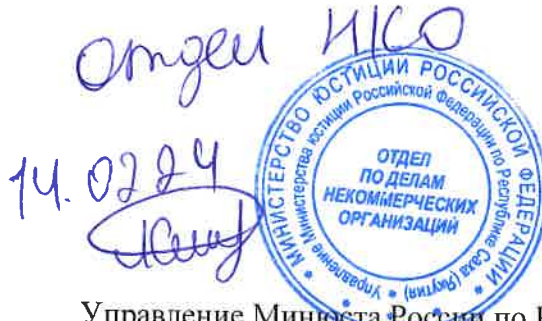 Отдел НКО
14.02.24
МИНИСТЕРСТВО ЮСТИЦИИ РОССИЙСКОЙ ФЕДЕРАЦИИ
Управление Министерства юстиции Российской Федерации по Республике Саха (Якутия)
ОТДЕЛ
ПО ДЕЛАМ
НЕКОММЕРЧЕСКИХ
ОРГАНИЗАЦИЙ
Управление Минюста России по